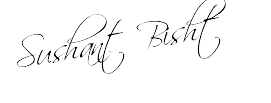 Sushant Bisht